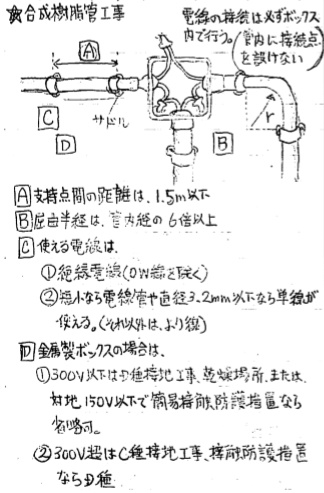 ☆合成樹脂管工事
電線の接続は必ずボックス
内で行う。(管内に接続点
を設けない)
A
サドル
C
D
B
r
A 支持点間の距離は、1.5m以下
B 屈曲半径は、管内径の6倍以上
C 使える電線は
①絶縁電線(OW線を除く)
②短小なら電線管や直径3.2mm以下なら単線が
使える。(それ以外は、より線)
D 金属製ボックスの場合は、
①300V以下はD種接地工事、乾燥場所、または、
対地150V以下で簡易接触防護措置なら
省略可。
②300V超はC種接地工事、接触防護措置
ならD種